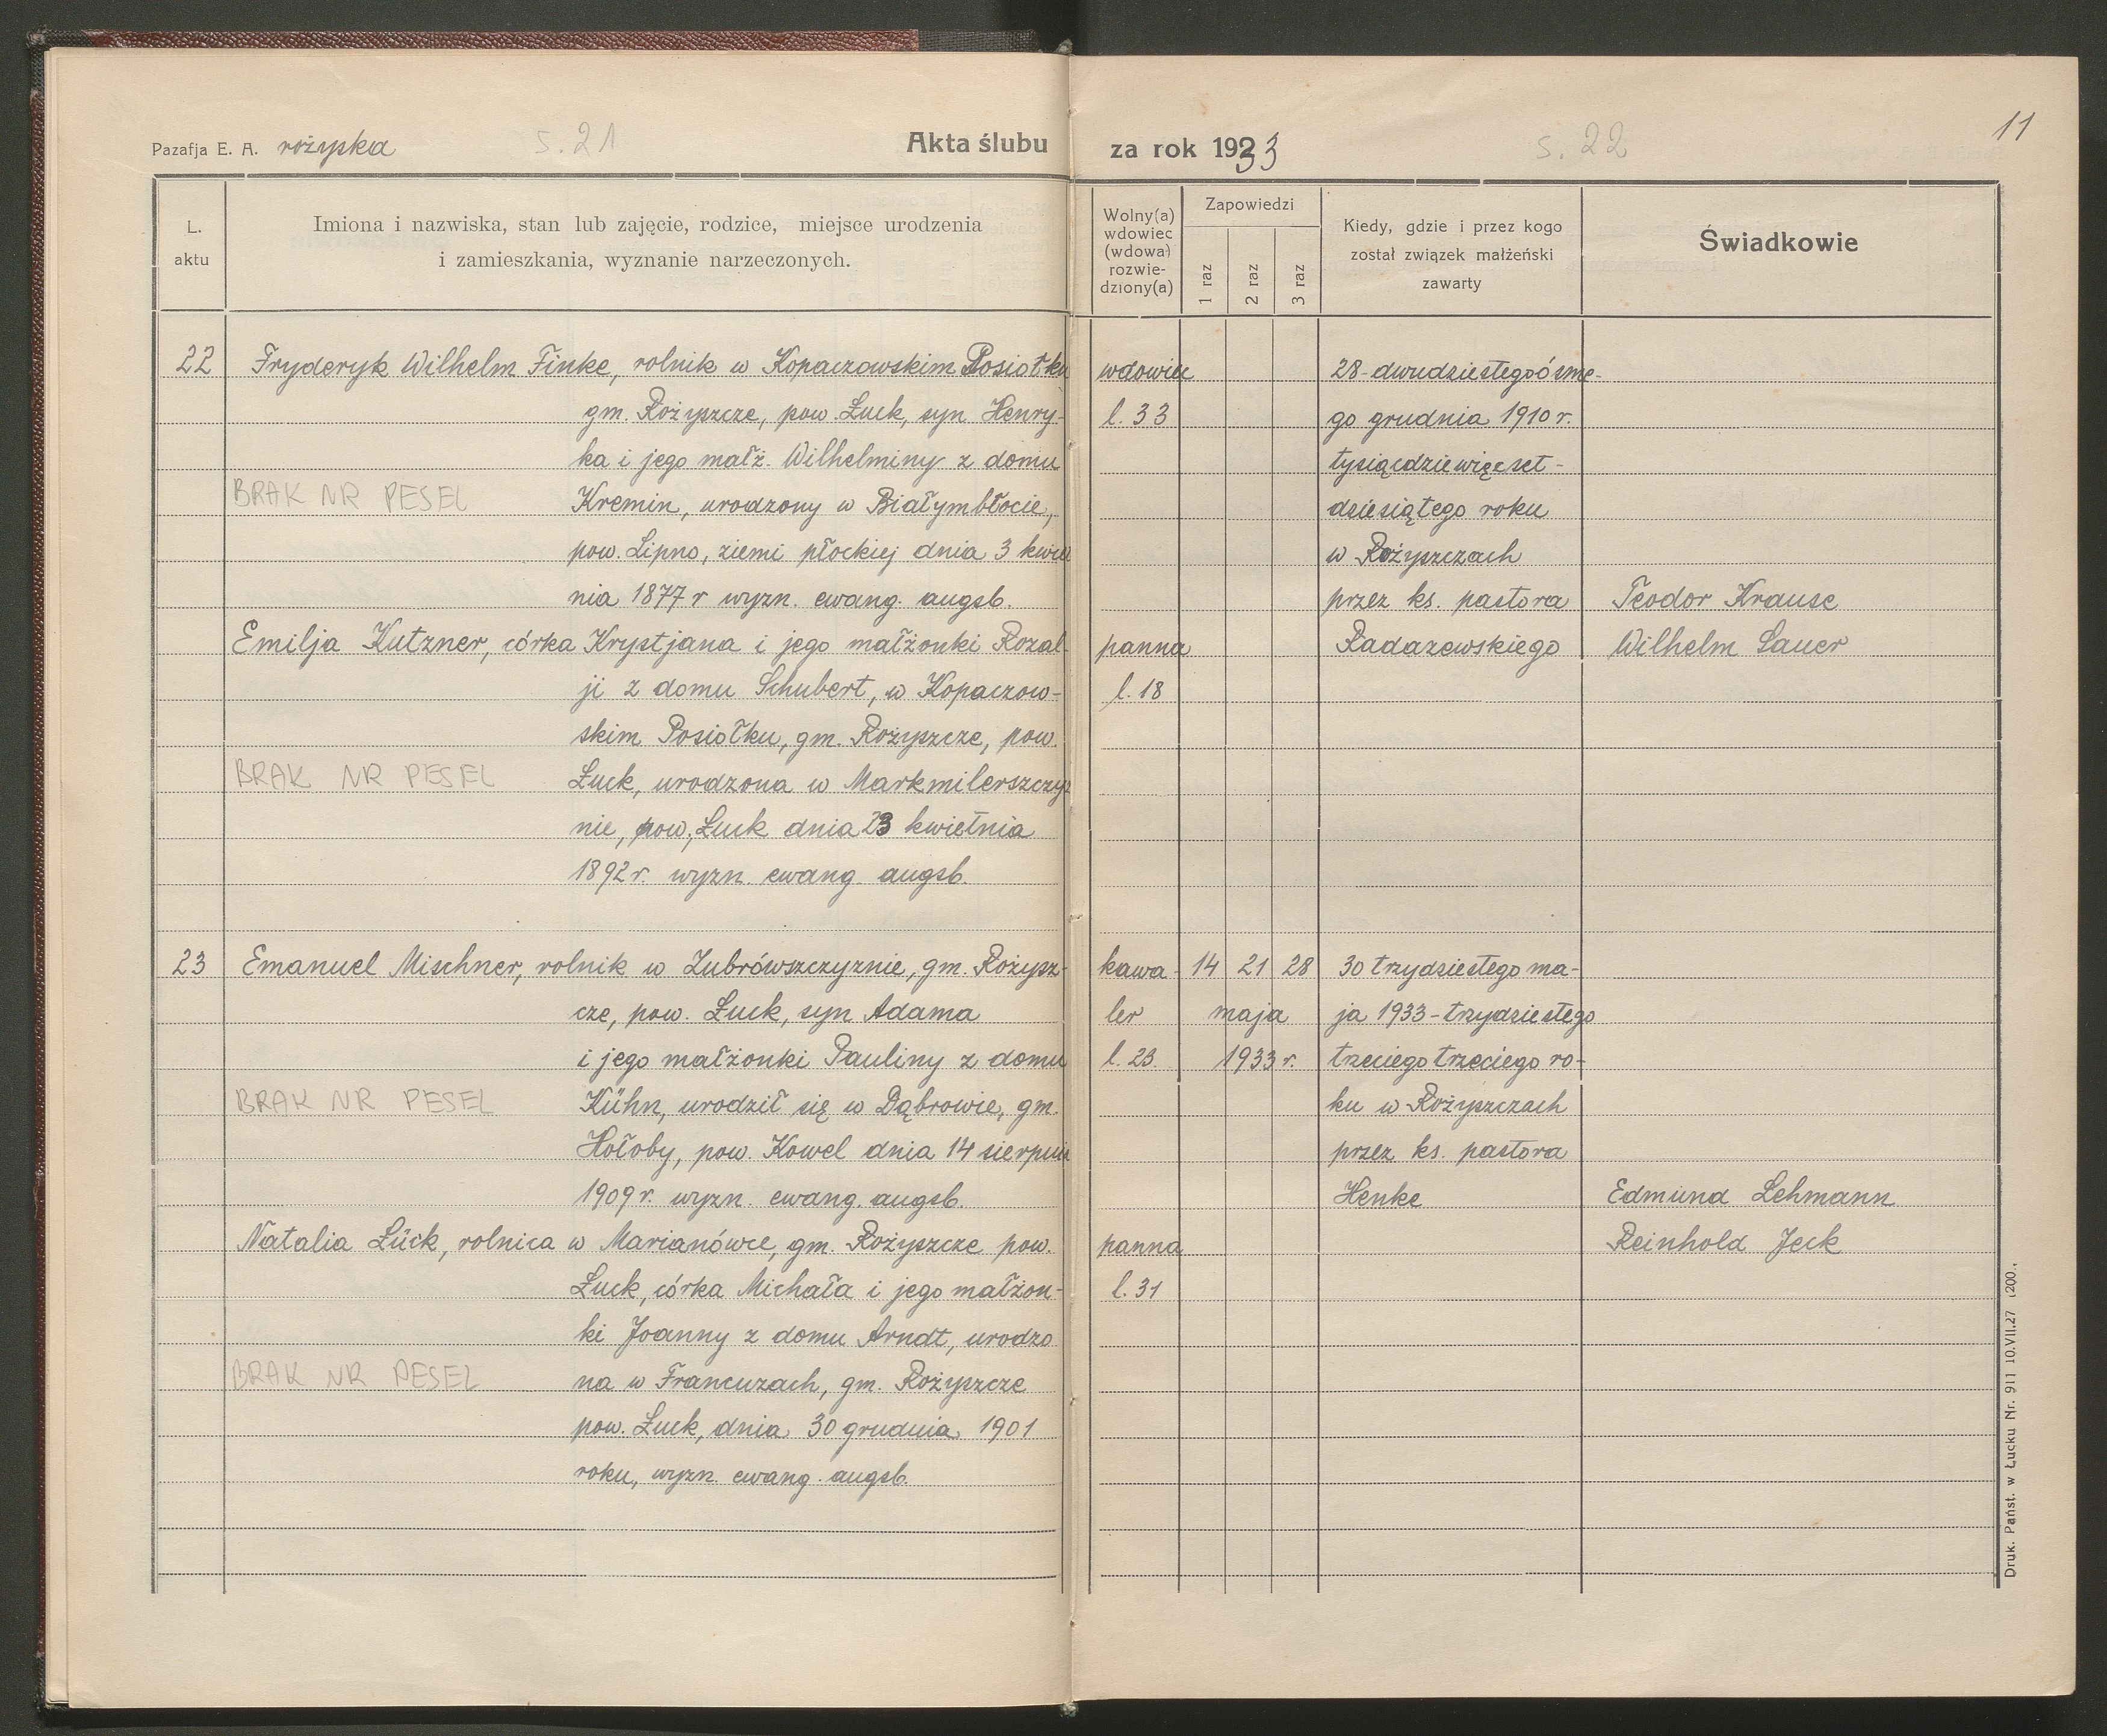 Pazafja E. A. rożyska
s. 21
Akta ślubu
za rok 1933
s. 22
11
L. aktu
Imiona i nazwiska, stan lub zajęcie, rodzice, miejsce urodzenia
i zamieszkania, wyznanie narzeczonych.
Wolny(a)
wdowiec
(wdowa)
rozwie-
dziony(a)
Zapowiedzi
1 raz
2 raz
3 raz
Kiedy, gdzie i przez kogo
został związek małżeński
zawarty
Świadkowie
22 Fryderyk Wilhelm Finke, rolnik w Kopaczowskim Posiołku
gm. Rożyszcze, pow. Łuck, syn Henry-
ka i jego małż. Wilhelminy z domu
BRAK NR PESEL
Kremin, urodzony w Białymbłocie,
pow. Lipno, ziemi płockiej dnia 3 kwiet
nia 1877 r wyzn. ewang. augsb.
wdowiec
l. 33
28-dwudziestegoósme-
go grudnia 1910 r.
tysiącdziewięćset-
dziesiątego roku
w Rożyszczach
przez ks. pastora
Radazewskiego
Teodor Krause
Wilhelm Sauer
Emilja Kutzner, córka Krystjana i jego małżonki Rozal-
ji z domu Schubert, w Kopaczow-
skim Posiołku, gm. Rożyszcze, pow.
BRAK NR PESEL
Łuck, urodzona w Markmilerszczyz
nie, pow. Łuck dnia 23 kwietnia
1892 r. wyzn. ewang. augsb.
panna
l. 18
23 Emanuel Mischner, rolnik w Zubrówszczyznie, gm. Rożysz-
cze, pow. Łuck, syn Adama
i jego małżonki Pauliny z domu
BRAK NR PESEL
Kühn, urodził się w Dąbrowie, gm.
Hołoby, pow. Kowel dnia 14 sierpnia
1909 r. wyzn. ewang. augsb.
kawa-
ler
l. 23.
14 21 28
maja
1933 r.
30 trzydziestego ma-
ja 1933-trzydziestego
trzeciego trzeciego ro-
ku w Rożyszczach
przez ks. pastora
Henke
Edmund Lehmann
Reinhold Jeck
Natalia Lück, rolnica w Marianówce, gm. Rożyszcze pow.
Łuck, córka Michała i jego małżon-
ki Joanny z domu Arndt, urodzo
BRAK NR PESEL
na w Francuzach, gm. Rożyszcze
pow. Łuck, dnia 30 grudnia 1901
roku, wyzn. ewang. augsb.
panna
l. 31
Druk. Państ. w Łucku Nr. 911 10.VII.27 1200.